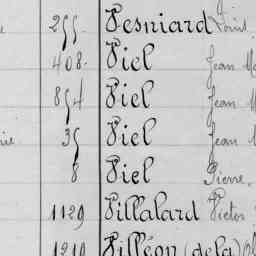 255. Vesniard Louis
408. Viel Jean M
854 Viel Jean M
35 Viel Jean M
8 Viel Pierre.
1129 Villalard Victor
1210 Villéon (de la)